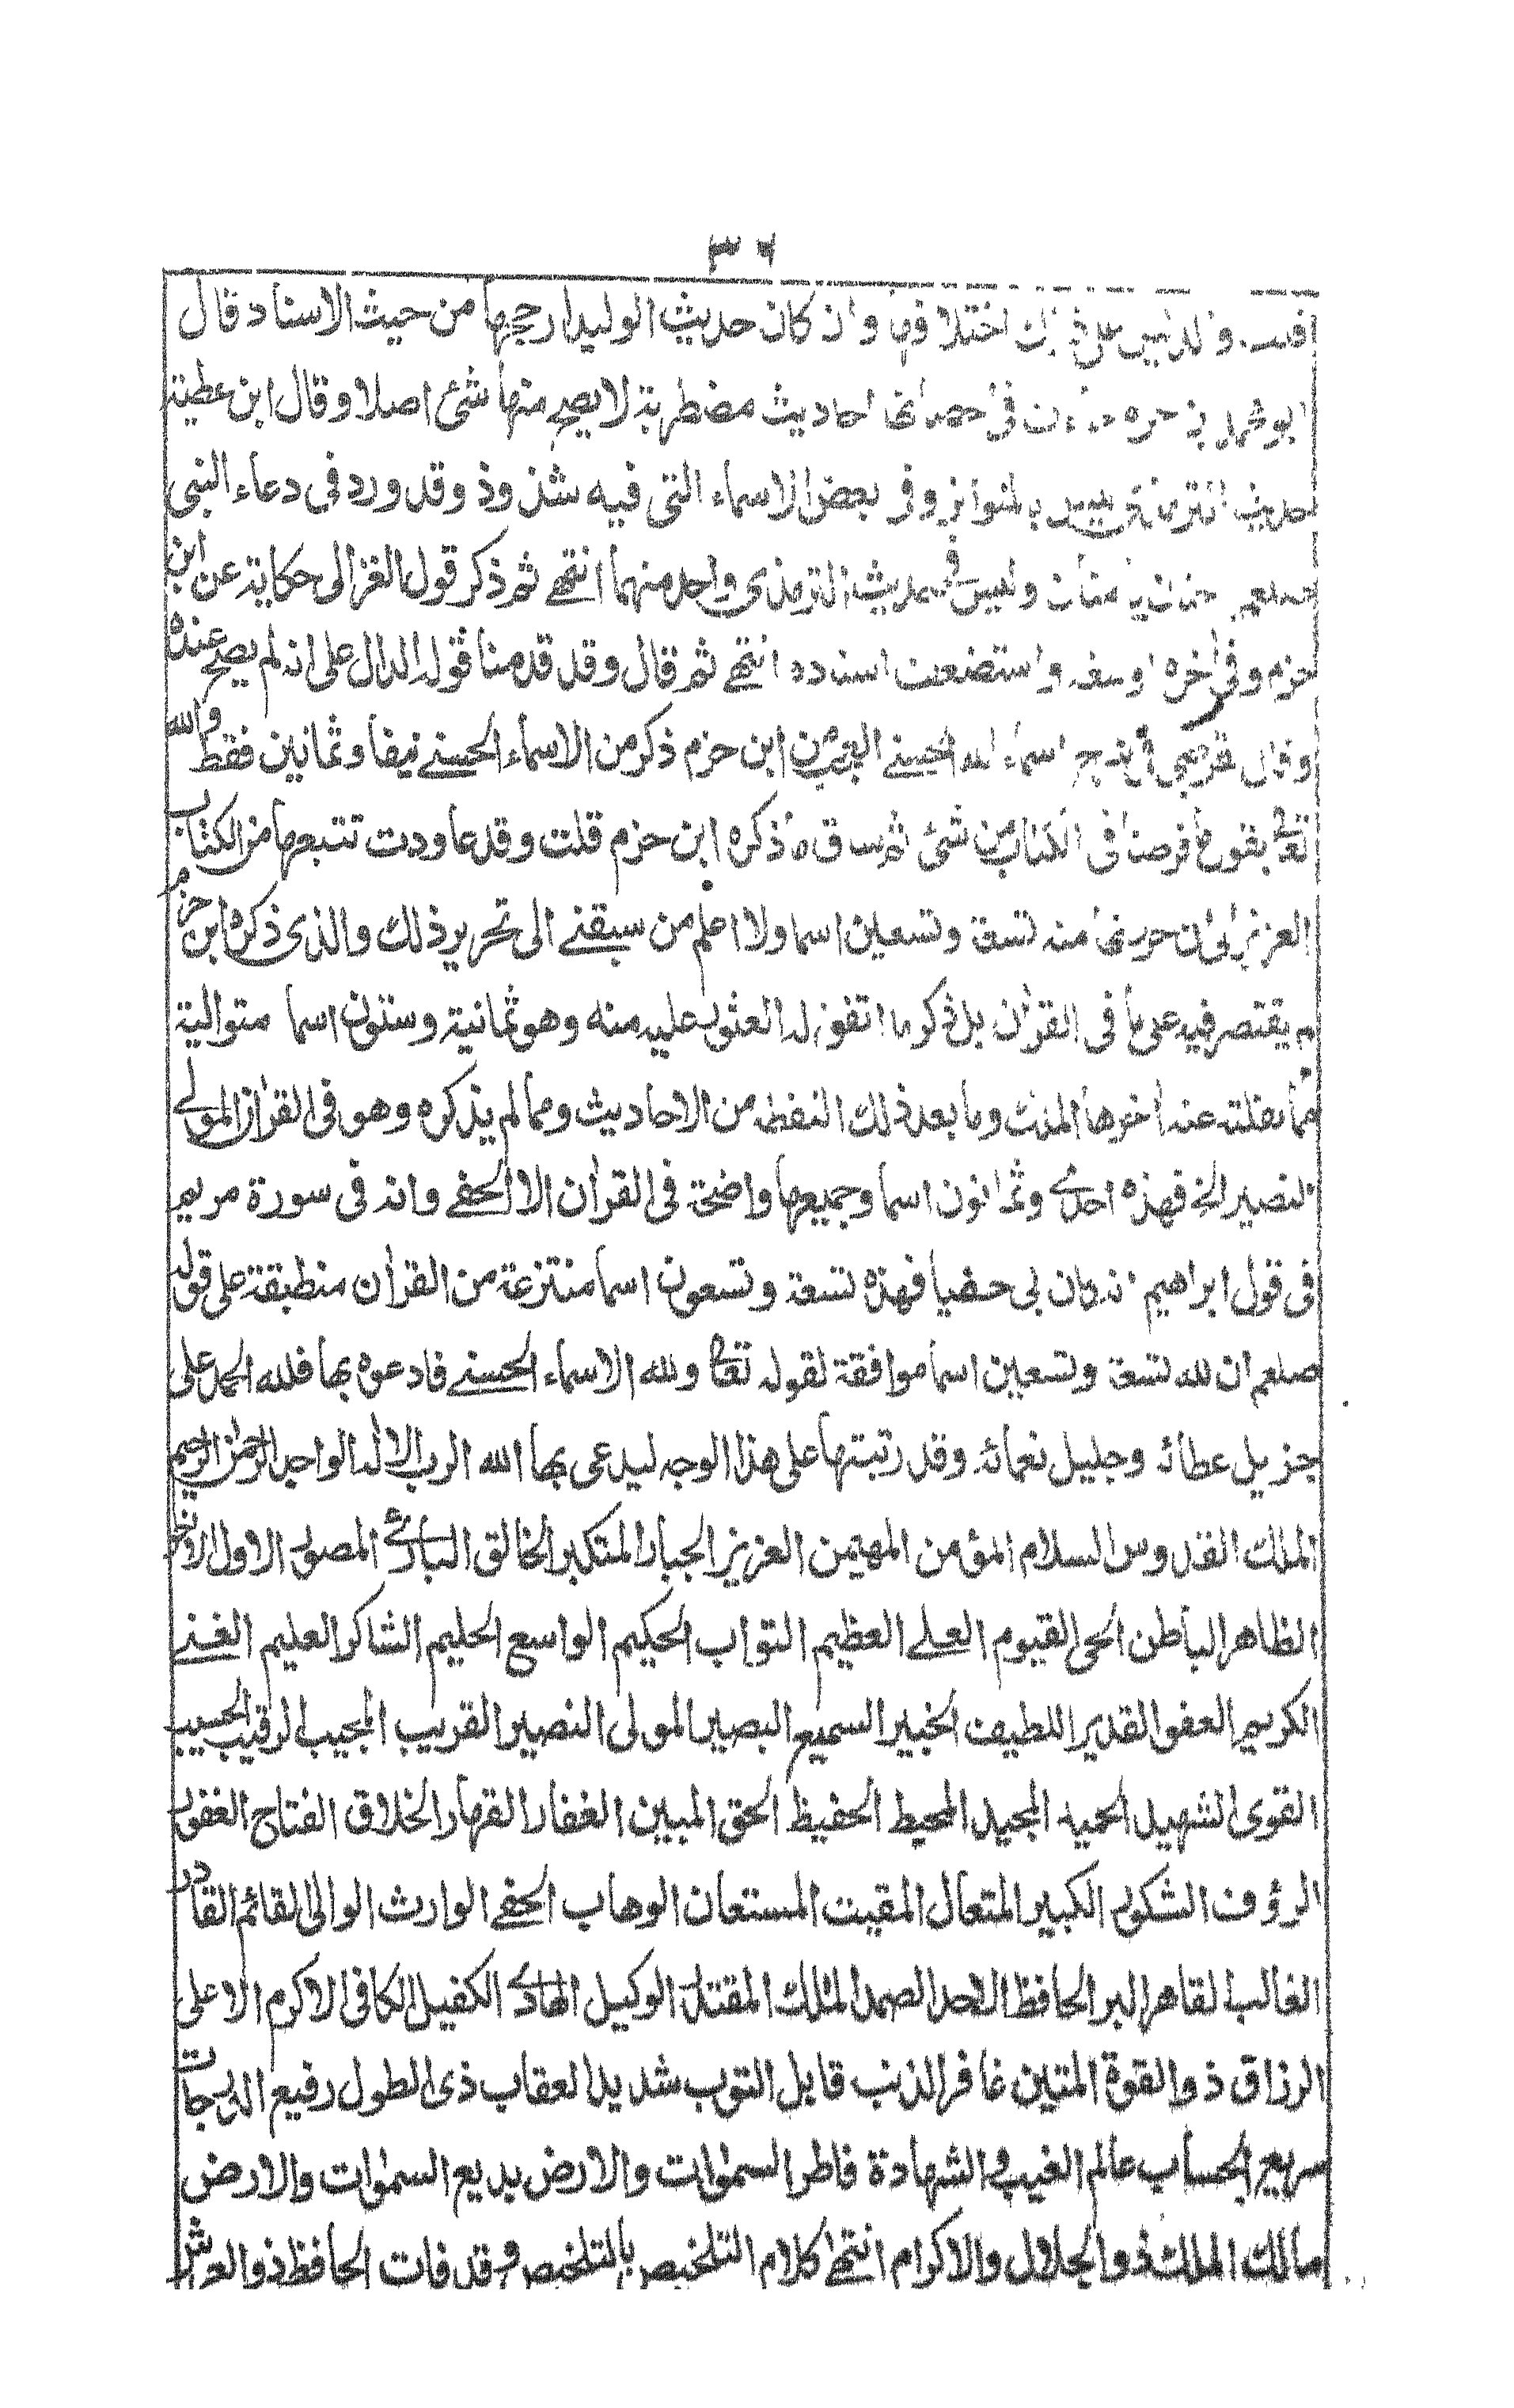 ٣٦
وان كان حديث الوليد ارجحها من حيث الاسناد قال
ابو محمد بن حزم احاديث مضطربة لا يصح منها شئ اصلا وقال ابن عطية
حديث الترمذي ليس بالمتواتر وفي بعض الاسماء التى فيه شذوذ وقد ورد فى دعاء النبى
صلعم يا حنان يا منان وليس فى حديث الترمذى واحد منهما انتهى ثم ذكر قول الغزالى حكاية عن ابن
حزم وفى اخره واستضعف اسناده انتهى ثم قال وقد قدمنا قوله الدال على انه لم يصح عنده
وقال القرطبى فى شرح اسماء الله الحسنى العجب من ابن حزم ذكر من الاسماء الحسنى نيفا وثمانين فقط والله
تعالى يقول ما فرطنا فى الكتاب من شئ ثم ساق ما ذكره ابن حزم قلت وقد عاودت تتبعها من الكتاب
العزيز الى ان حررتها منه تسعة وتسعين اسما ولا اعلم من سبقنى الى تحرير ذلك والذى ذكره ابن حزم
لم يقتصر فيه على ما فى القران بل ذكر ما اتفق له العثور عليه منه وهو ثمانية وستون اسما متوالية
مما نقلته عنه اخرها الملك وما بعد ذلك التقطه من الاحاديث ومما لم يذكره وهو فى القران المولى
النصير الخ فهذه احدى وثمانون اسما وجميعها واضحة فى القران الا الحفى وانه فى سورة مريم
فى قول ابراهيم انه كان بى حفيا فهذه تسعة وتسعون اسما منتزعة من القران منطبقة على قوله
صلعم ان لله تسعة وتسعين اسما موافقة لقوله تعالى ولله الاسماء الحسنى فادعوه بها فلله الحمد على
جزيل عطائه وجليل نعمائه وقد رتبتها على هذا الوجه ليدعى بها الله الرب الاله الواحد الرحمن الرحيم
الملك القدوس السلام المؤمن المهيمن العزيز الجبار المتكبر الخالق البارئ المصور الاول الاخر
الظاهر الباطن الحى القيوم العلى العظيم التواب الحكيم الواسع الحليم الشاكر العليم الغنى
الكريم العفو القدير اللطيف الخبير السميع البصير المولى النصير القريب المجيب الرقيب الحسيب
القوى الشهيد الحميد المجيد المحيط الحفيظ الحق المبين الغفار القهار الخلاق الفتاح الغفور
الرؤف الشكور الكبير المتعال المقيت المستعان الوهاب الحفى الوارث الوالى القائم القادر
الغالب القاهر البر الحافظ الاحد الصمد الملك المقتدر الوكيل الهادى الكفيل الكافى الاكرم الاعلى
الرزاق ذو القوة المتين غافر الذنب قابل التوب شديد العقاب ذى الطول رفيع الدرجات
سريع الحساب عالم الغيب والشهادة فاطر السموات والارض بديع السموات والارض
مالك الملك ذو الجلال والاكرام انتهى كلام التلخيص بالتلخيص وقد فات الحافظ ذو العرش